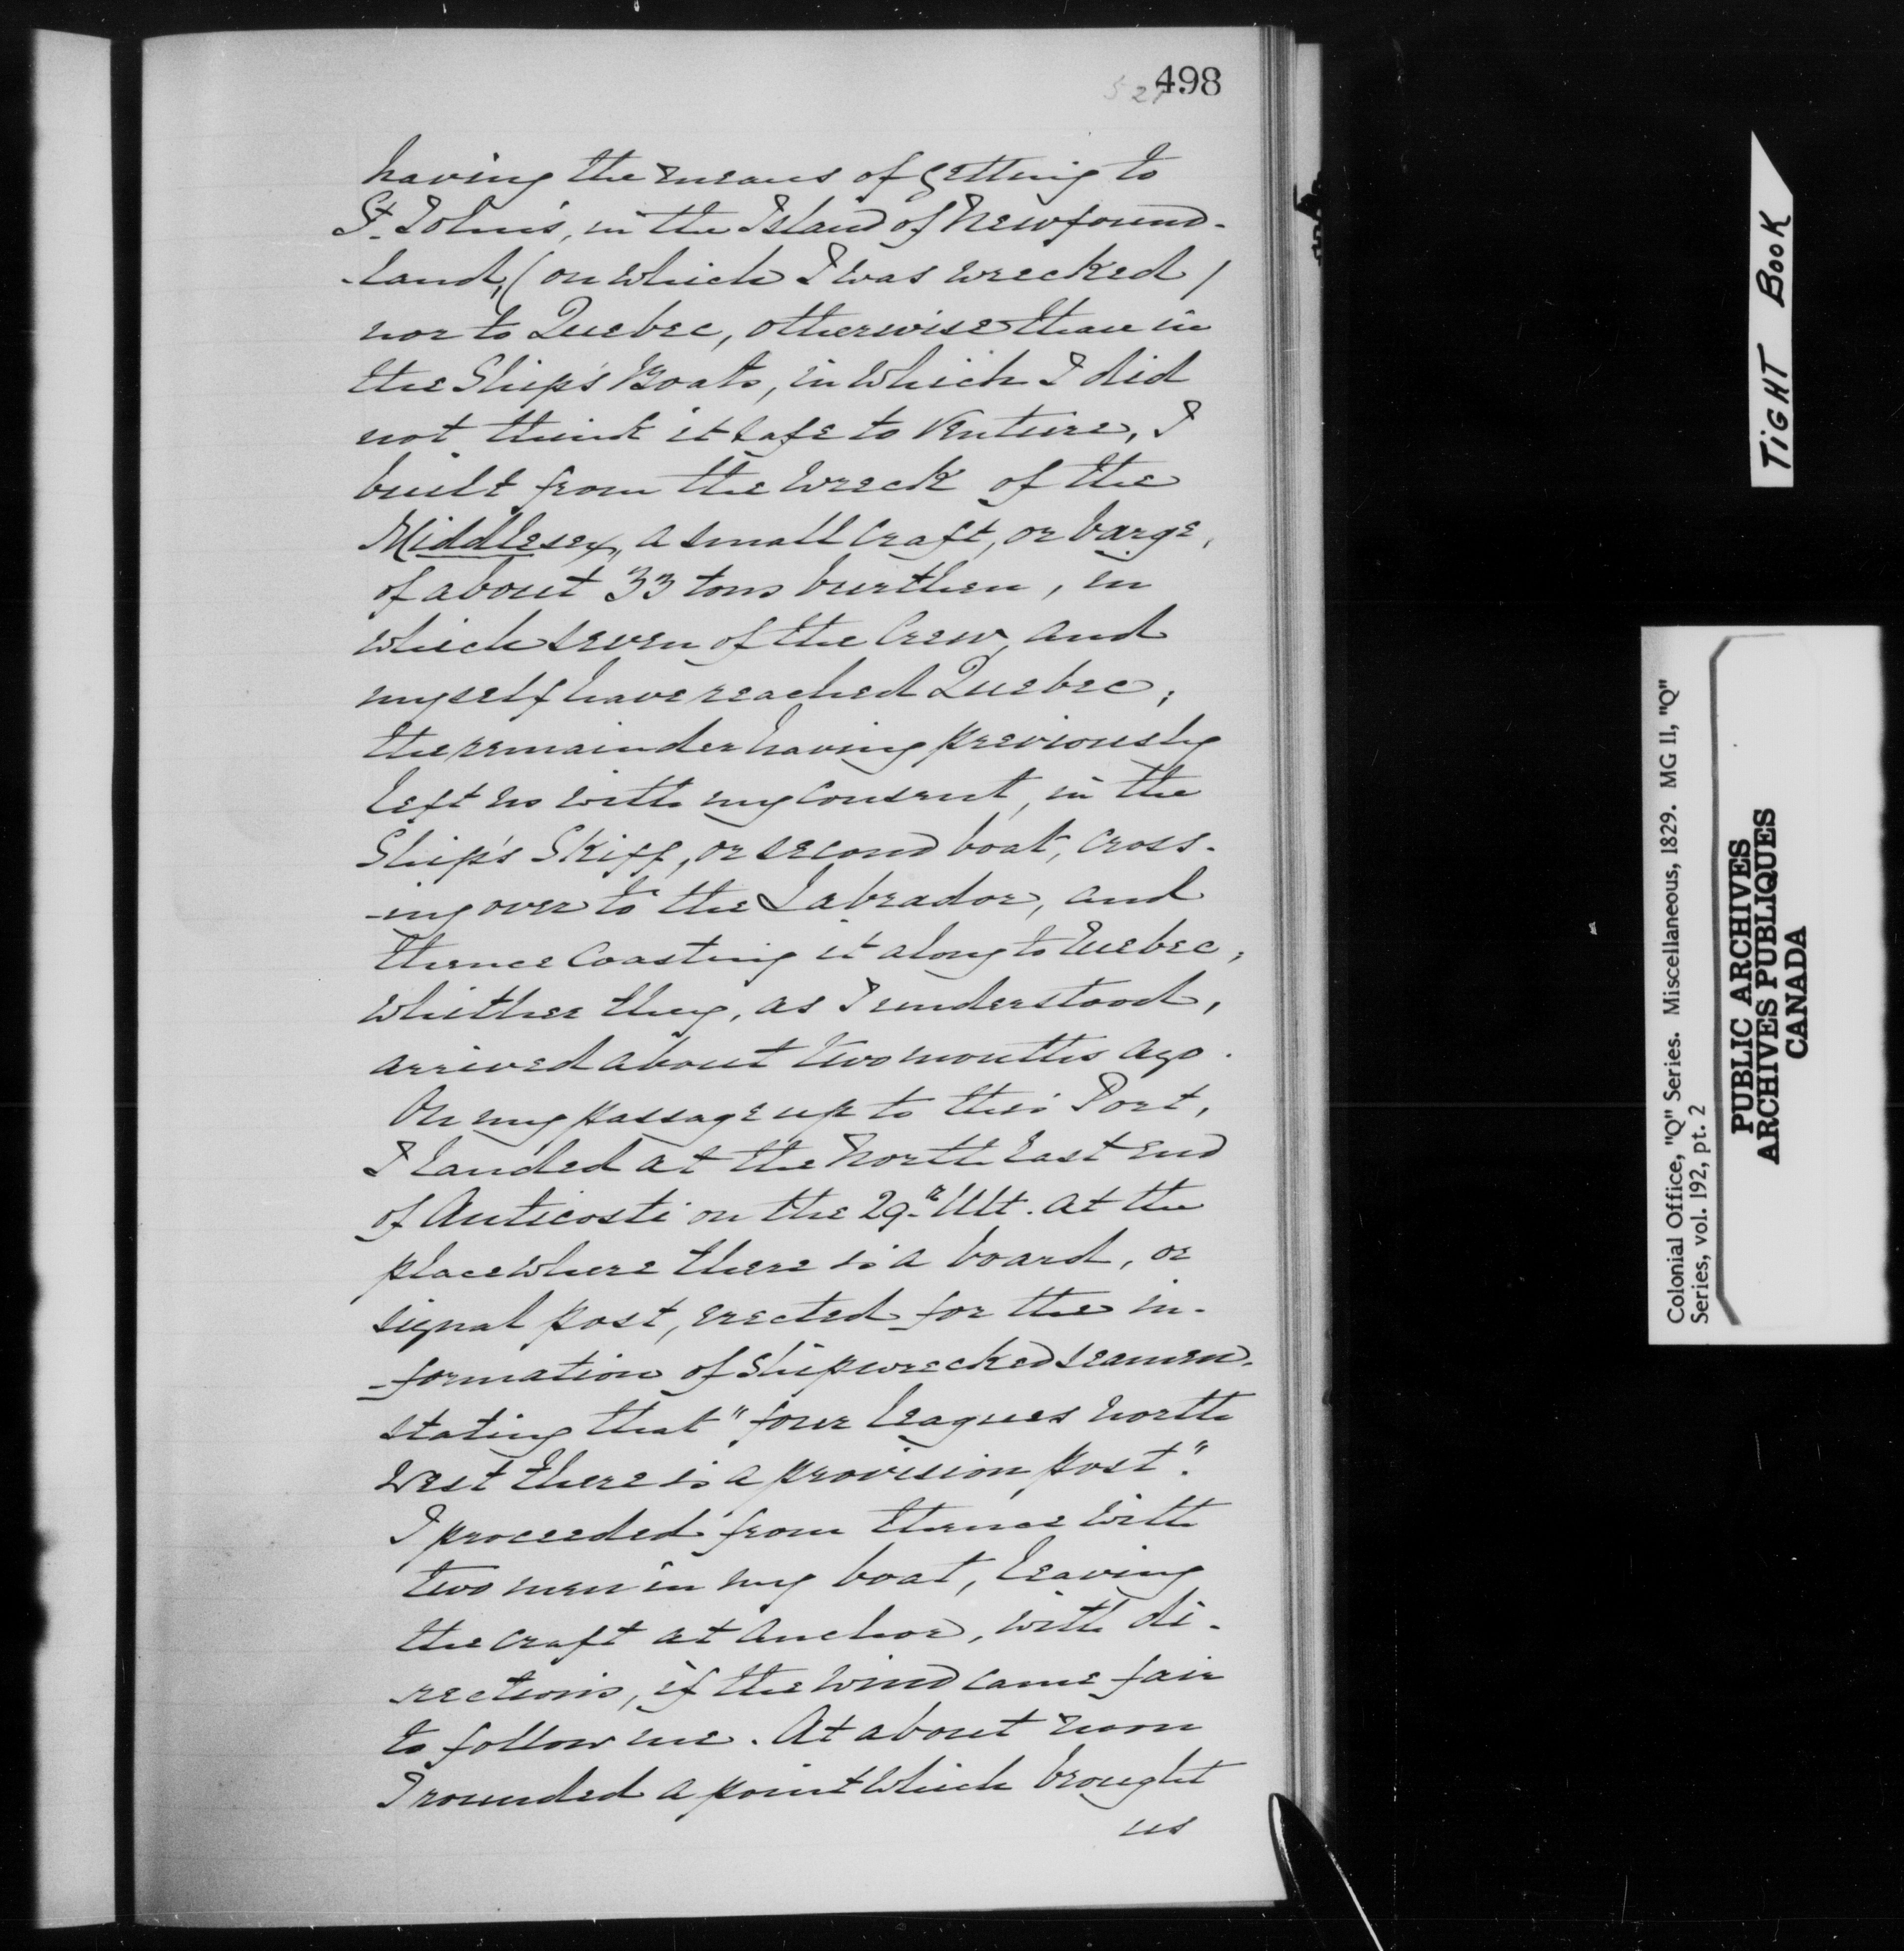 498
having the means of getting to
St. John's, in the Island of Newfound-
-land, (on which I was wrecked)
nor to Quebec, otherwise than in
the Ship's Boats, in which I did
not think it safe to venture, I
built from the wreck of the
Middlesex, a small craft, or barge,
of about 33 tons burthen, in
which seven of the Crew, and
myself have reached Quebec;
the remainder having previously
left us with my consent, in the
Ship's Skiff, or second boat, cross-
-ing over to the Labrador, and
thence coasting it along to Quebec,
whither they, as I understood,
arrived about two months ago.
On my passage up to this Port,
I landed at the North East end
of Anticosti on the 29th Ult. at the
place where there is a board, or
signal post, erected for the in-
-formation of Shipwrecked seamen,
stating that "four leagues north
west there is a provision post".
I proceeded from thence with
two men in my boat, leaving
the craft at anchor, with di-
rections, if the wind came fair
to follow me. At about noon
I rounded a point which brought
us
TIGHT BOOK
Colonial Office, "Q" Series. Miscellaneous, 1829. MG 11, "Q"
Series, vol. 192, pt. 2
PUBLIC ARCHIVES
ARCHIVES PUBLIQUES
CANADA